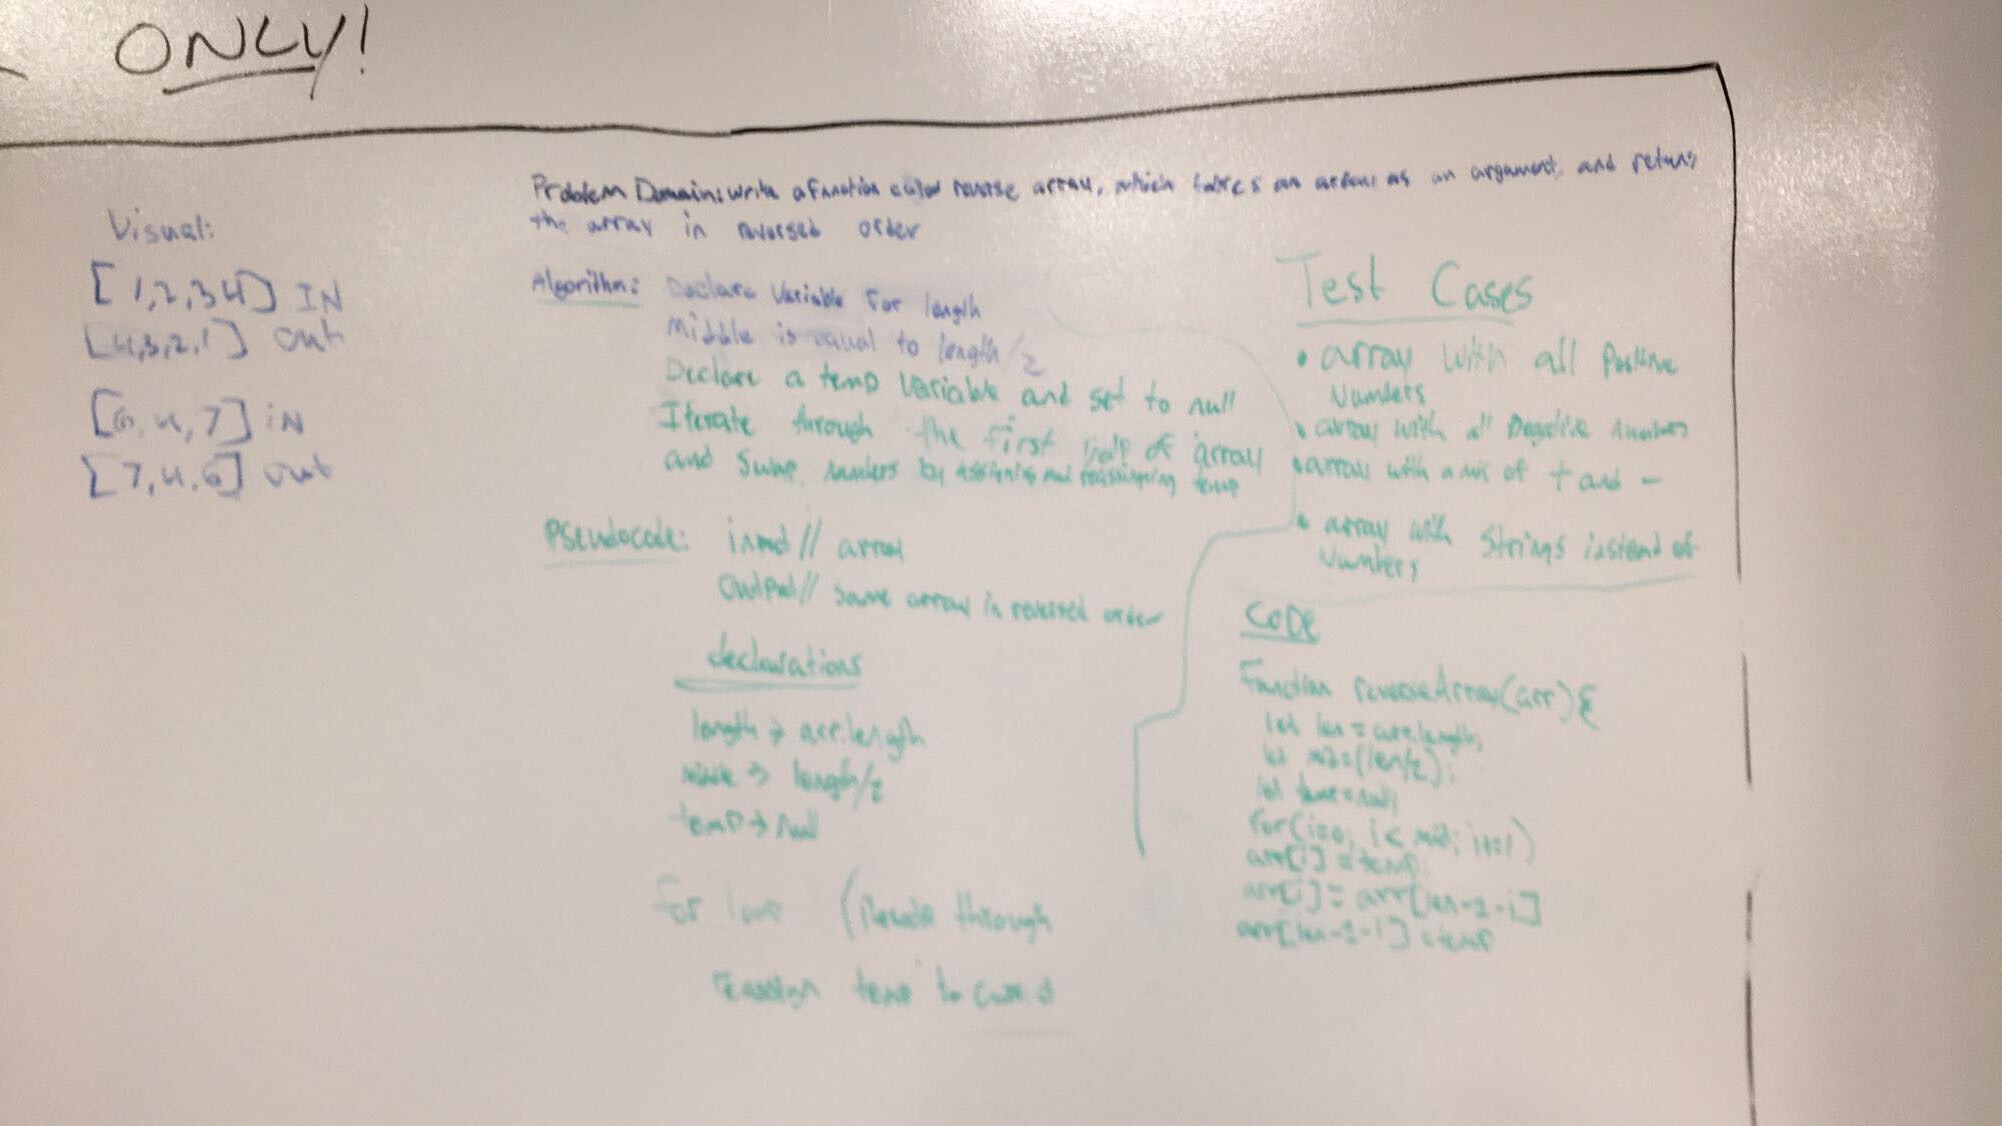 ONLY!
Problem Domain: write a function called reverse array, which takes an array as an argument, and returns
the array in reversed order
Visual:
[1,2,3 4] IN
[4,3,2,1] out
[6, 4, 7] iN
[7, 4, 6] out
Algorithm: Declare Variable For length
Middle is equal to length/2
Declare a temp variable and set to null
Iterate through the first half of array
and swap numbers by assigning and reassigning temp
Pseudocode: input// array
output// same array in reversed order
declarations
length → arr.length
middle → length/2
temp → null
for loop (iterate through
reassign temp to
Test Cases
• array with all positive
Numbers
• array with all negative numbers
• array with a mix of + and -
• array with Strings instead of
Numbers
CODE
Function reverseArray(arr){
let len = arr.length;
let mid=(len/2);
let temp=null;
for(i=0; i< mid; i+=1)
arr[i] = temp;
arr[i] = arr[len-1-i]
arr[len-1-i] = temp